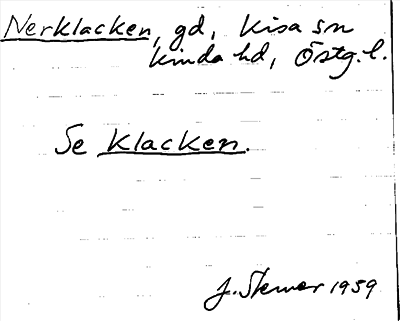 Nerklacken, gd, Kisa sn
Kinda hd, Östg.l.
Se Klacken.
J. Stemer 1959